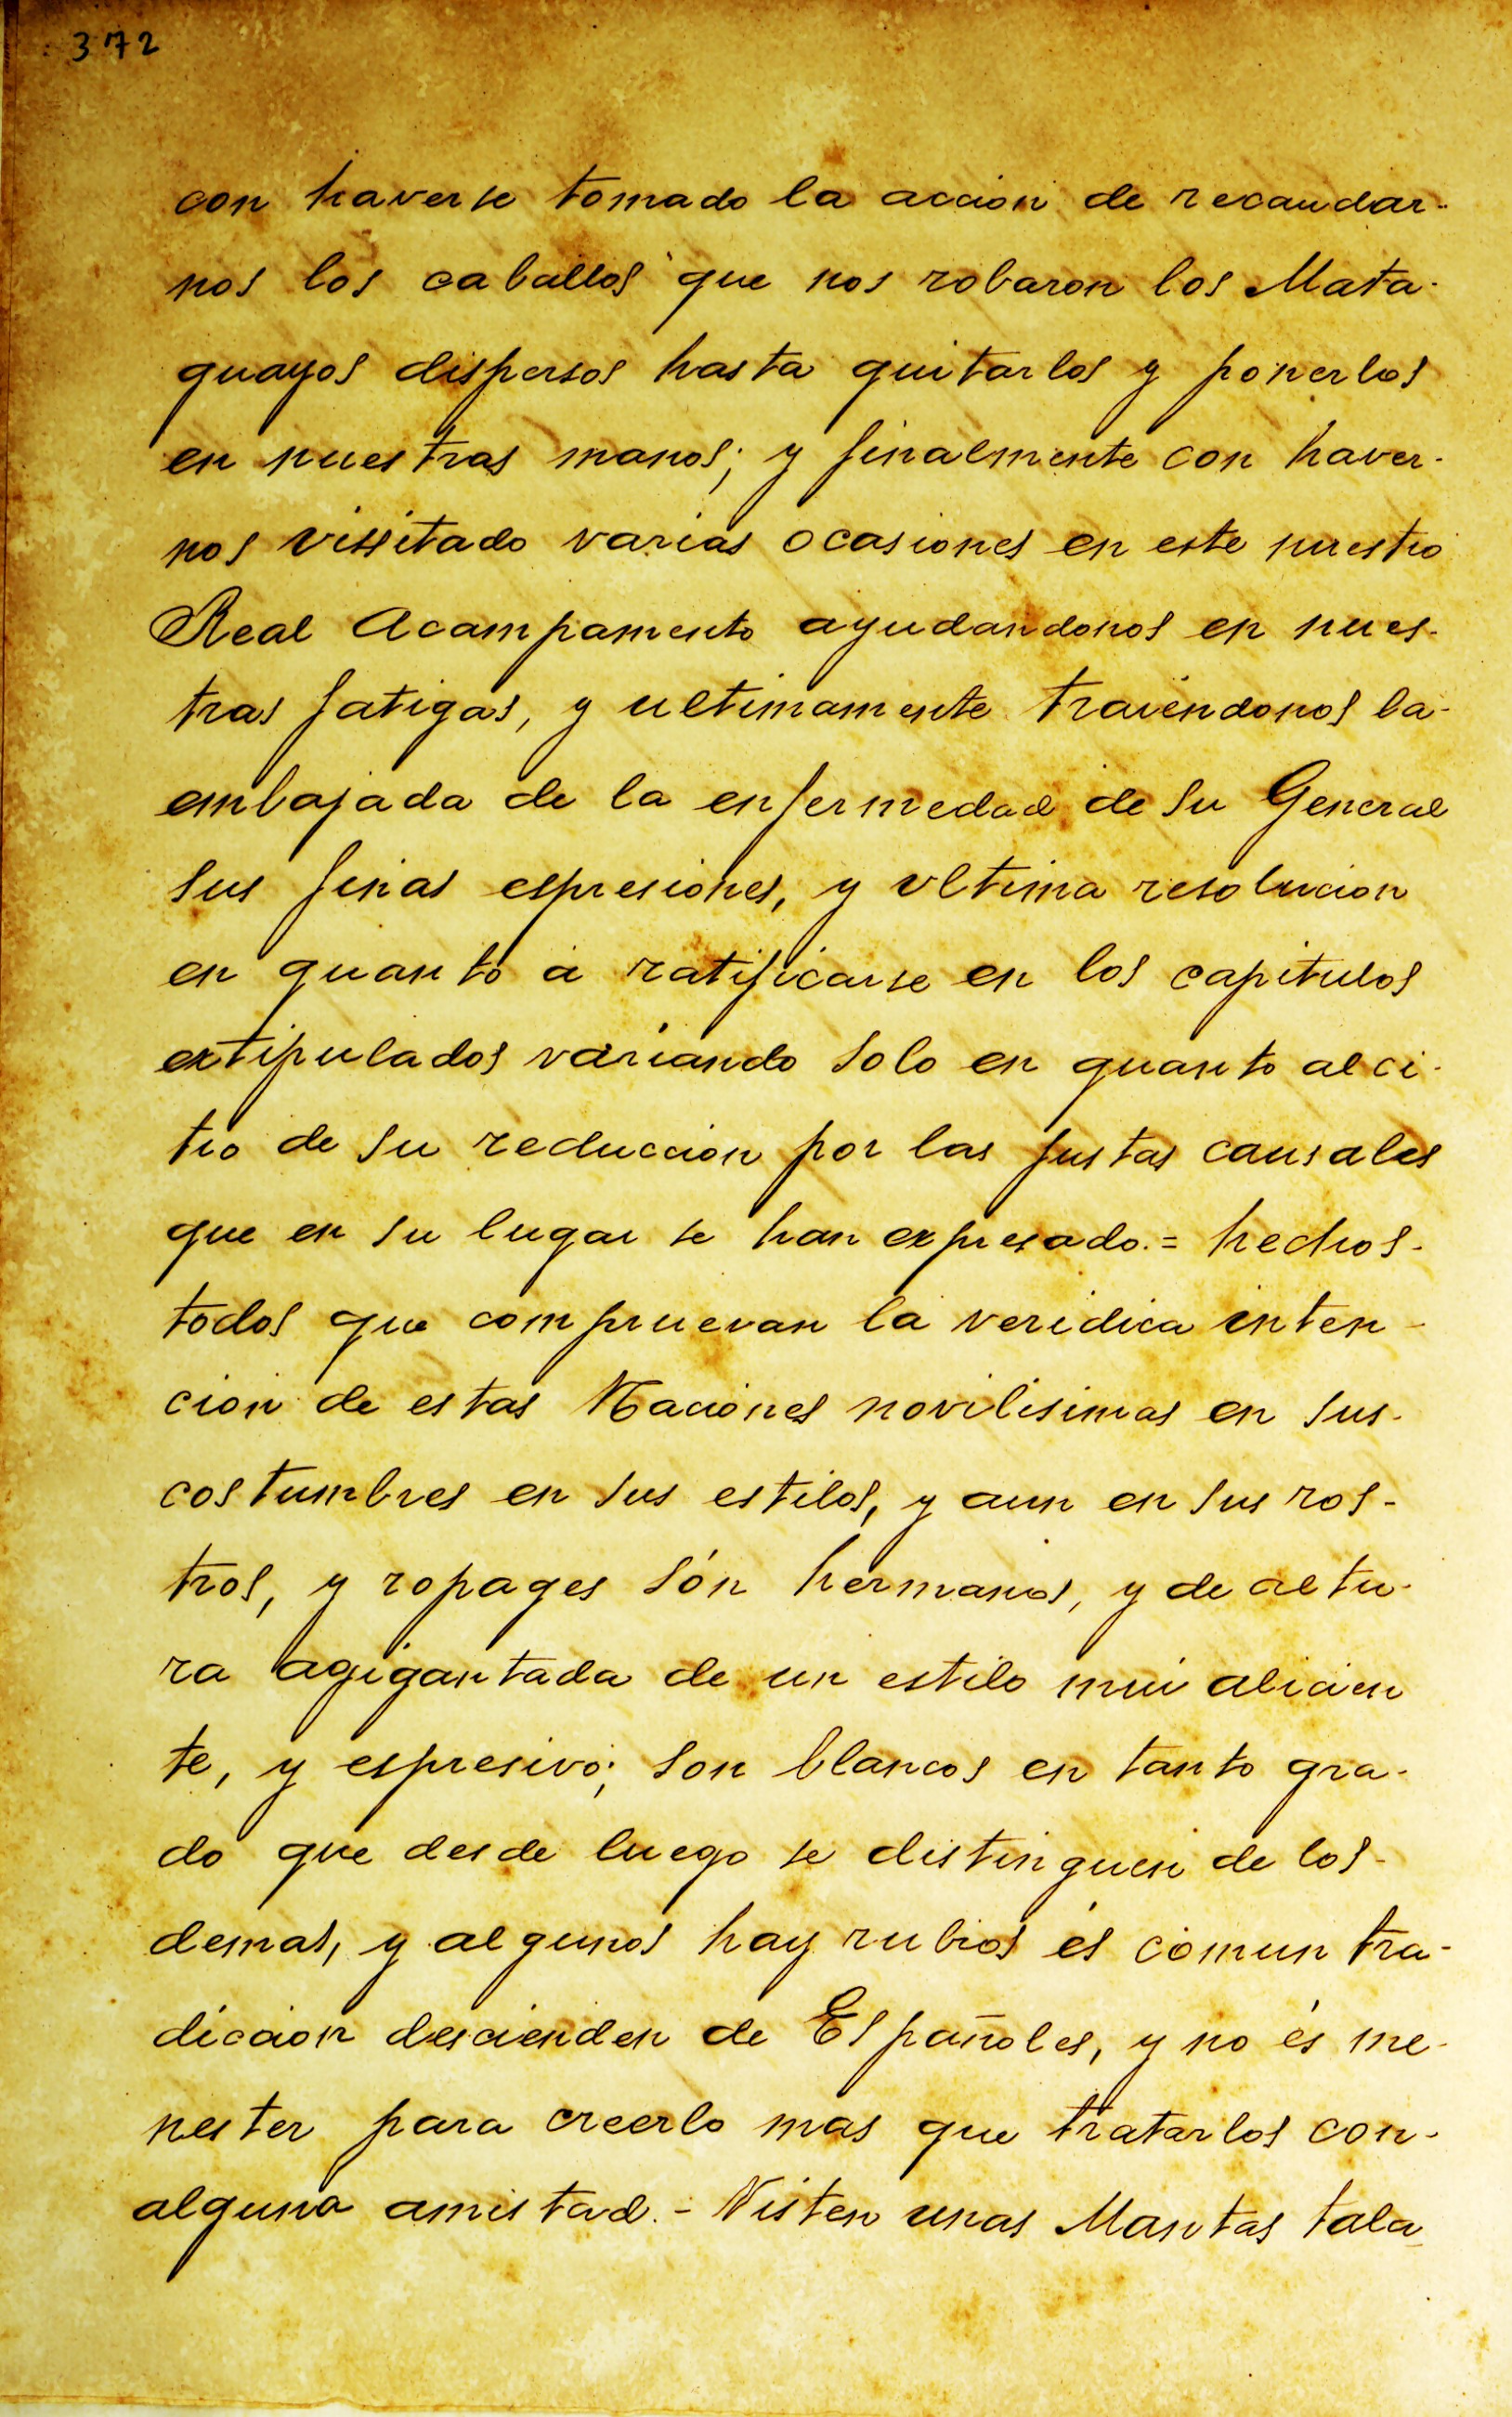 372
con haverse tomado la accion de recaudar-
nos los caballos que nos robaron los Mata-
guayos dispersos hasta quitarlos y ponerlos
en nuestras manos; y finalmente con haver-
nos vissitado varias ocasiones en este nuestro
Real Acampamento ayudandonos en nues-
tras fatigas, y ultimamente traiendonos la-
embajada de la enfermedad de su General
sus finas espresiones, y vltima resolucion
en quanto á ratificarse en los capitulos
extipulados variando solo en quanto al ci-
tio de su reduccion por las justas causales
que en su lugar se han expresado.= hechos-
todos que compruevan la veridica inten-
cion de estas Naciones novilisimas en sus-
costumbres en sus estilos, y aun en sus ros-
tros, y ropages són hermanos, y de altu-
ra agigantada de un estilo mui alicien
te, y espresivo; son blancos en tanto gra-
do que desde luego se distinguen de los-
demas, y algunos hay rubios és comun tra-
diccion descienden de Españoles, y no és me-
nester para creerlo mas que tratarlos con-
alguna amistad.- Visten unas Mantas tala